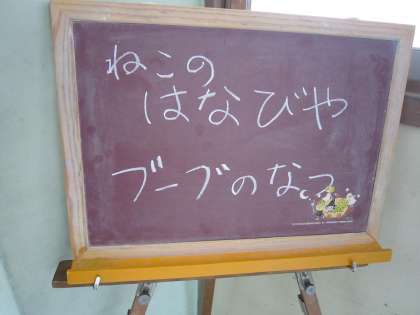 ねこの
はなびや
ブーブのなつ